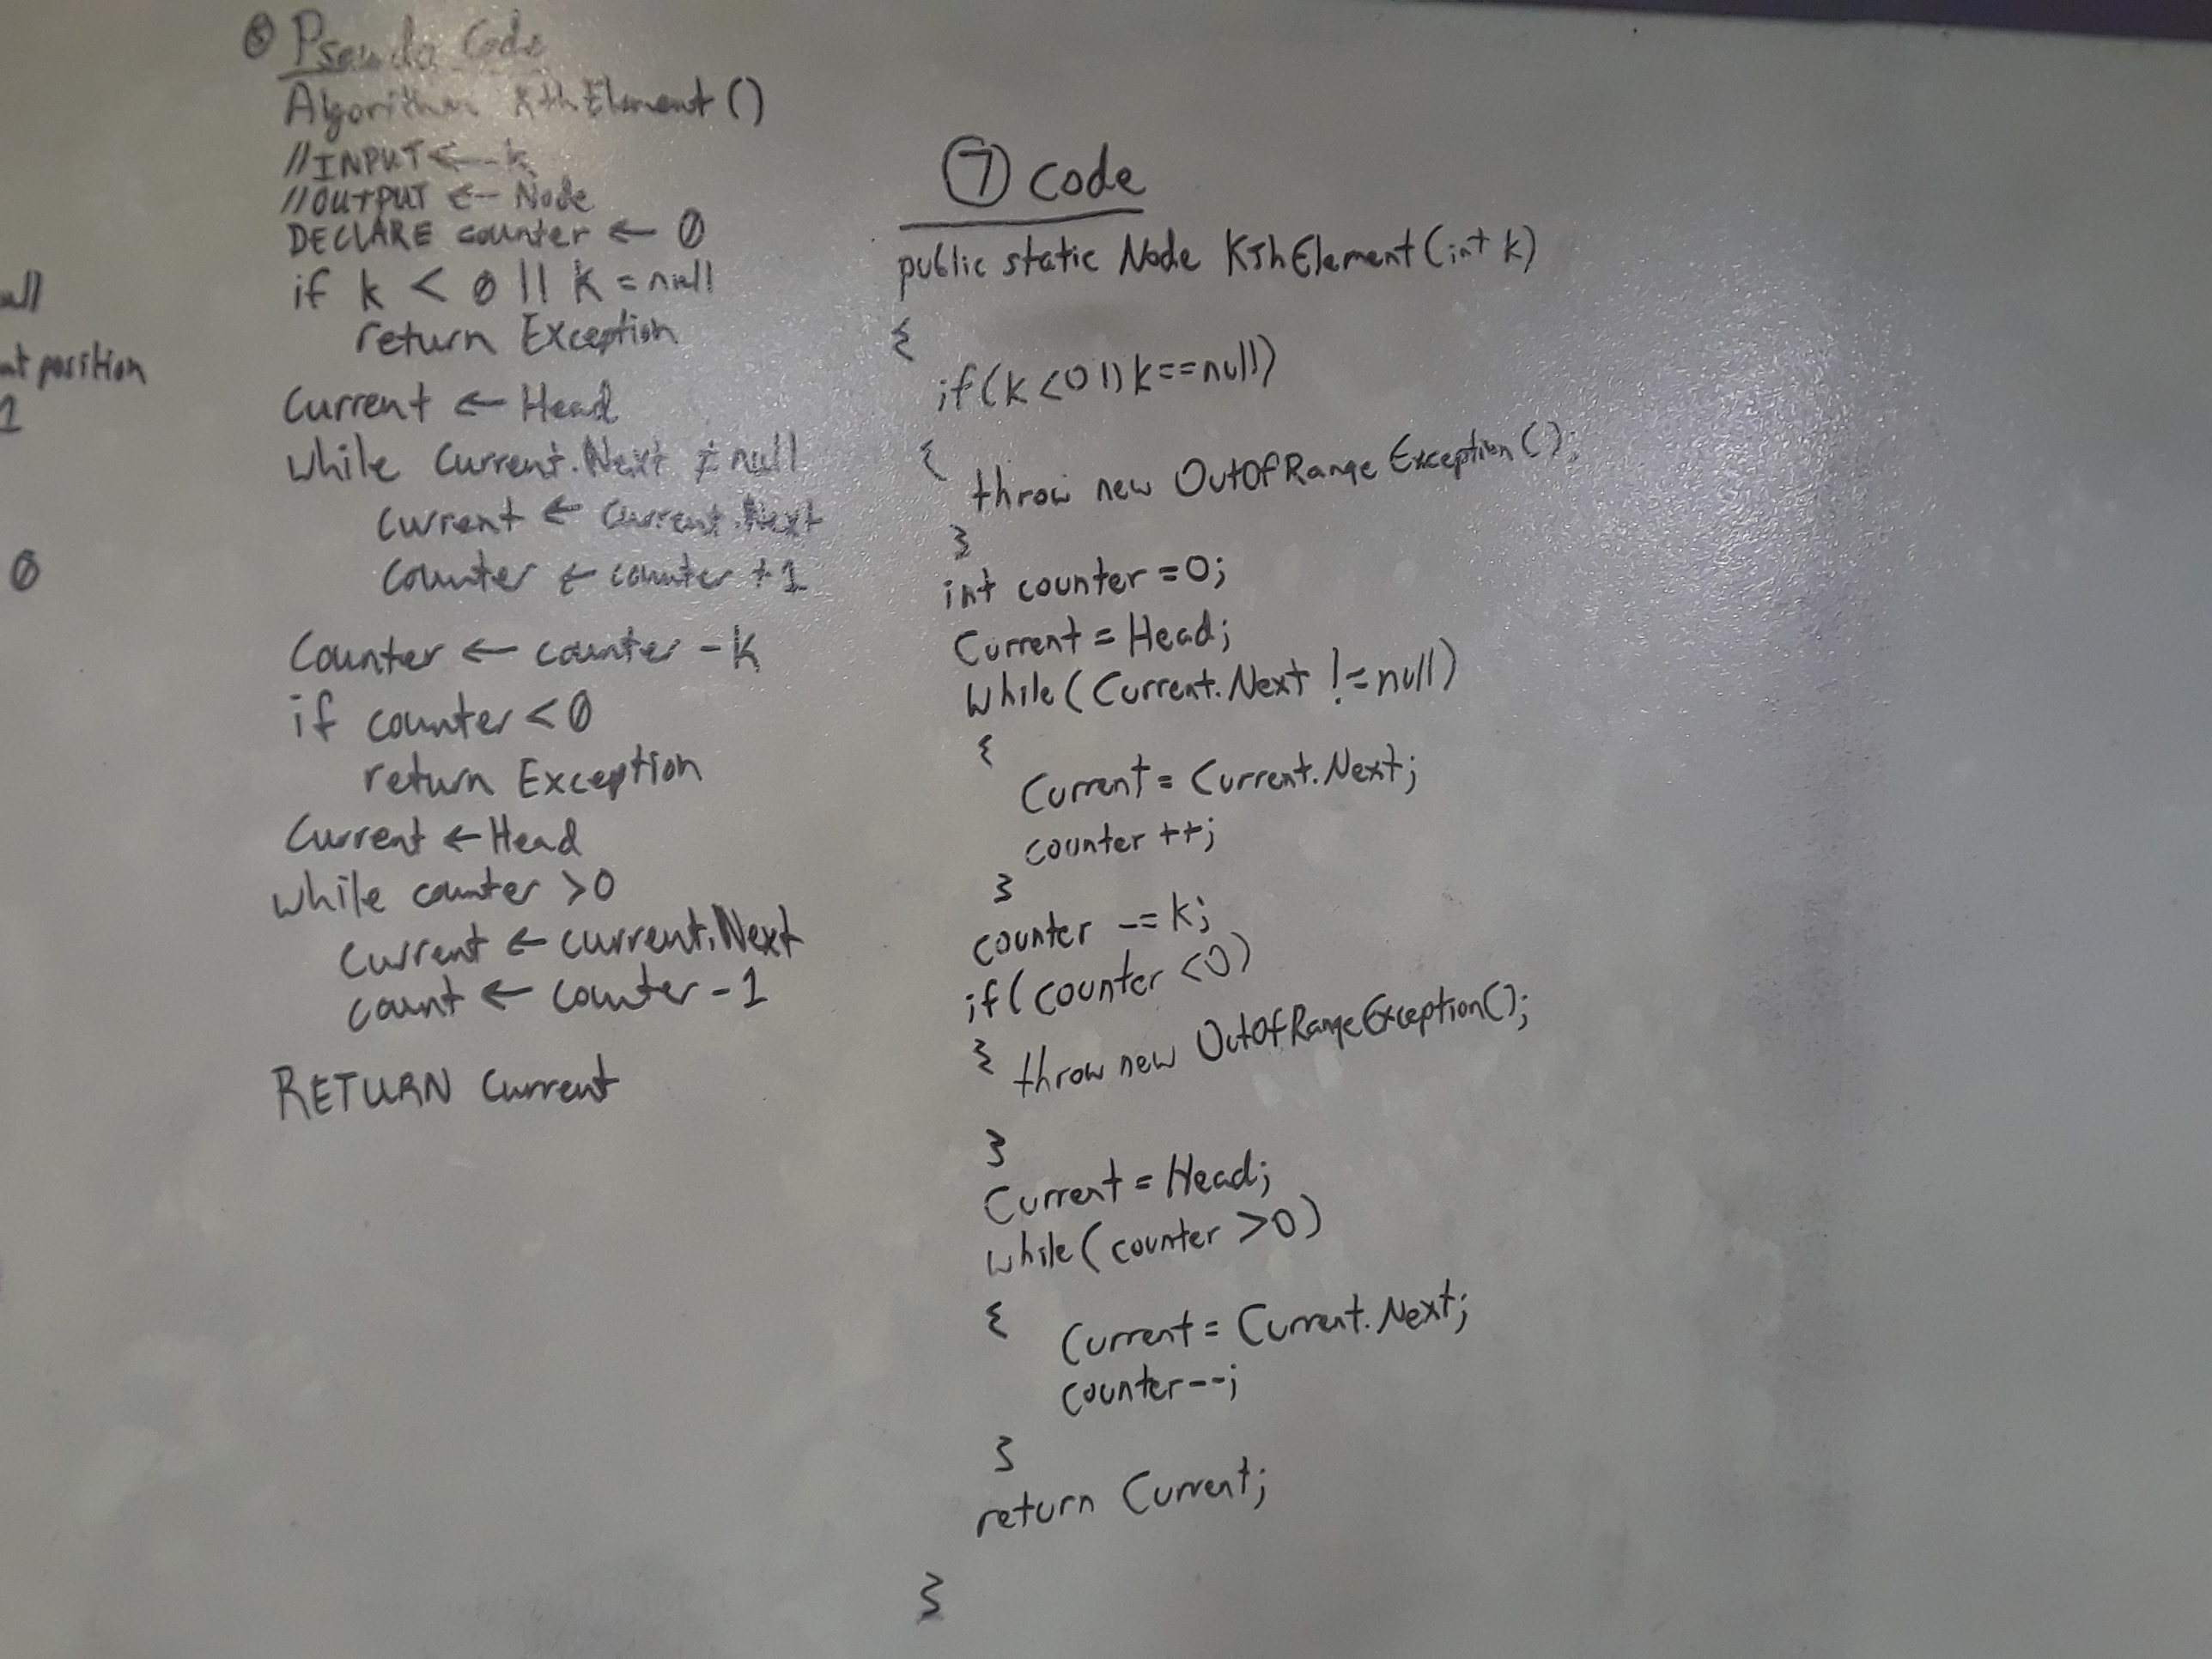 all
at position
1
0
⑤ Pseudo Code
Algorithm KthElement()
//INPUT ← k
//OUTPUT ← Node
DECLARE counter ← 0
if k < 0 || k = null
return Exception
Current ← Head
while Current.Next ≠ null
Current ← Current.Next
Counter ← counter + 1
Counter ← counter - k
if counter < 0
return Exception
Current ← Head
while counter > 0
Current ← current.Next
count ← counter - 1
RETURN Current
⑦ Code
public static Node KthElement(int k)
{
if(k < 0 || k == null)
{
throw new OutOfRangeException();
}
int counter = 0;
Current = Head;
while(Current.Next != null)
{
Current = Current.Next;
counter ++;
}
counter -= k;
if(counter < 0)
{ throw new OutOfRangeException();
}
Current = Head;
while(counter > 0)
{ Current = Current.Next;
counter--;
}
return Current;
}